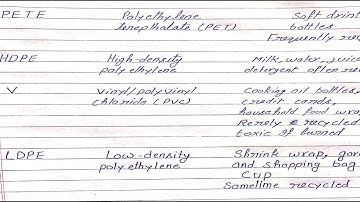 PETE Polyethylene Soft drin
terepthalate (PET) bottles
Frequently rec
HDPE High-density Milk, water, juic
polyethylene detergent often re
V Vinyl/polyvinyl Cooking oil bottles,
chloride (PVC) credit cards,
household food wra
Rerely & recycled
toxic if burned
LDPE Low-density Shrink wrap, gar
polyethylene and shopping bag
Cup
Sometime recycled